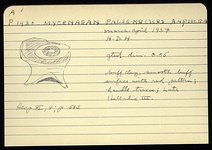 A'
P 1420 MYCENAEAN FALSE-NECKED AMPHORA
March-April 1937
H.D.H.
gtest dim: 0.05
buff clay, smooth buff
surface with red pattern;
handle traces; Late
Helladic III
Hesp. VI, 4, p. 557